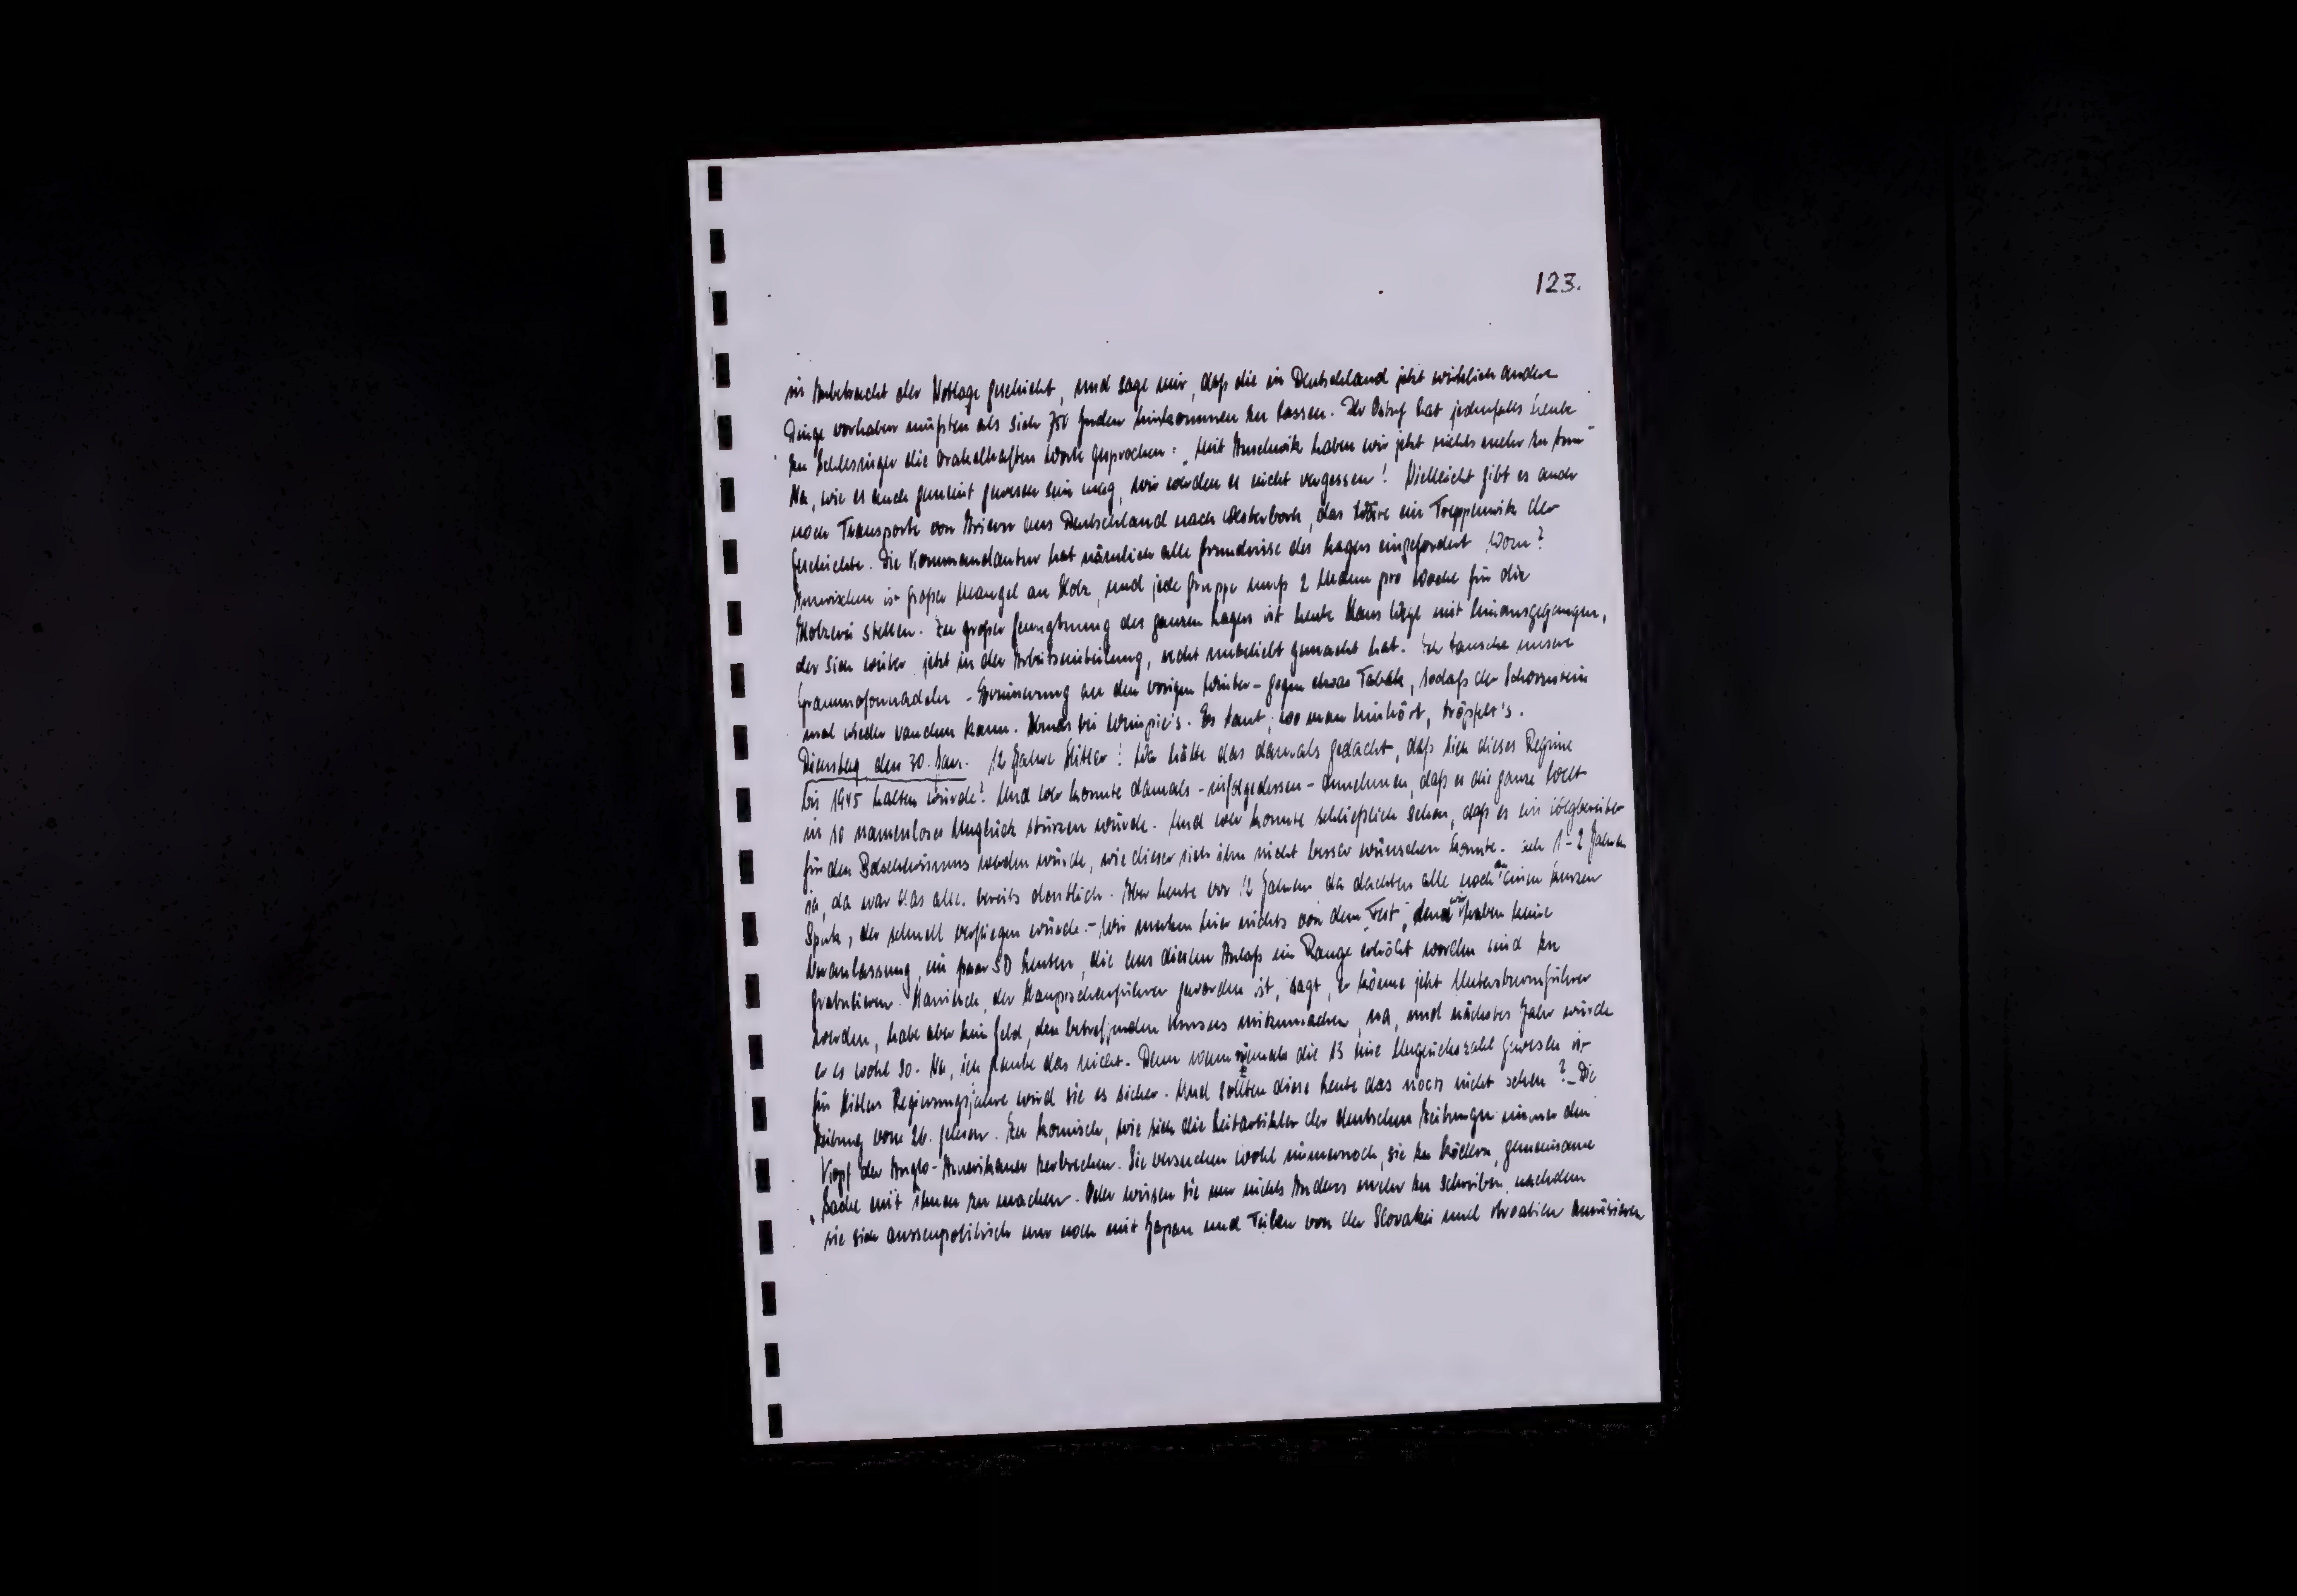 123.
in Anbetracht der Notlage geschieht, und sage mir, daß die in Deutschland jetzt wirklich andere
Dinge vorhaben müßten als sich 750 Juden hinkommen zu lassen. Der hat jedenfalls heute
zu Schlesinger die orakelhaften Worte gesprochen: „Mit Auschwitz haben wir jetzt nichts mehr zu tun"
Na, wie es auch gemeint gewesen sein mag, wir werden es nicht vergessen! Vielleicht gibt es auch
noch Transporte von Ariern aus Deutschland nach Westerbork, das wäre ein Treppenwitz der
Geschichte. Die Kommandantur hat nämlich alle Grundrisse des Lagers eingefordert. Wozu?
Inzwischen ist großer Mangel an Holz, und jede Gruppe muß 2 Mann pro Woche für die
Holzerei stellen. Zu großer Genugtuung des ganzen Lagers ist heute Hans mit hinausgegangen,
der sich jetzt in der Arbeitseinteilung, recht unbeliebt gemacht hat. Ich tausche unsere
Grammofonnadeln - Erinnerung an den vorigen Winter - gegen etwas Tabak, sodaß der Schornstein
mal wieder rauchen kann. Abends bei Wimpie's. Es taut, wo man hinhört, tröpfelt's.
Dienstag den 30. Jan. 12 Jahre Hitler! Wer hätte das damals gedacht, daß sich dieses Regime
bis 1945 halten würde? Und wer konnte damals - infolgedessen - annehmen, daß es die ganze Welt
in so namenloses Unglück stürzen würde. Und wer konnte schließlich sehen, daß es ein Wegbereiter
für den Bolschewismus werden würde, wie dieser sich ihn nicht besser wünschen konnte. 1-2 Jahren
ja, da war das alles bereits deutlich. Aber heute vor 12 Jahren da dachten alle noch an einen kurzen
Spuk, der schnell verfliegen würde. - Wir merken hier nichts von dem „Fest", denn wir haben keine
Veranlassung, ein paar SD Leuten, die aus diesem Anlaß im Range erhöht worden sind zu
gratulieren. der Hauptscharführer geworden ist, sagt, er könne jetzt Untersturmführer
werden, habe aber kein Geld, den betreffenden Kursus mitzumachen, na, und nächstes Jahr würde
er es wohl so. Na, ich glaube das nicht. Denn wenn jemals die 13 eine Unglückszahl gewesen ist
für Hitlers Regierungsjahre wird sie es sicher. Und sollten diese Leute das noch nicht sehen? - Die
Zeitung vom 26. gelesen. Zu komisch, wie sich die Leitartikler der deutschen Zeitungen immer den
Kopf der Anglo-Amerikaner zerbrechen. Sie versuchen wohl immernoch, sie zu ködern, gemeinsame
Sache mit ihnen zu machen. Oder wissen sie nur nichts Anders mehr zu schreiben, nachdem
sie sich aussenpolitisch nur noch mit Japan und Teilen von der Slovakei und Kroatien amüsieren